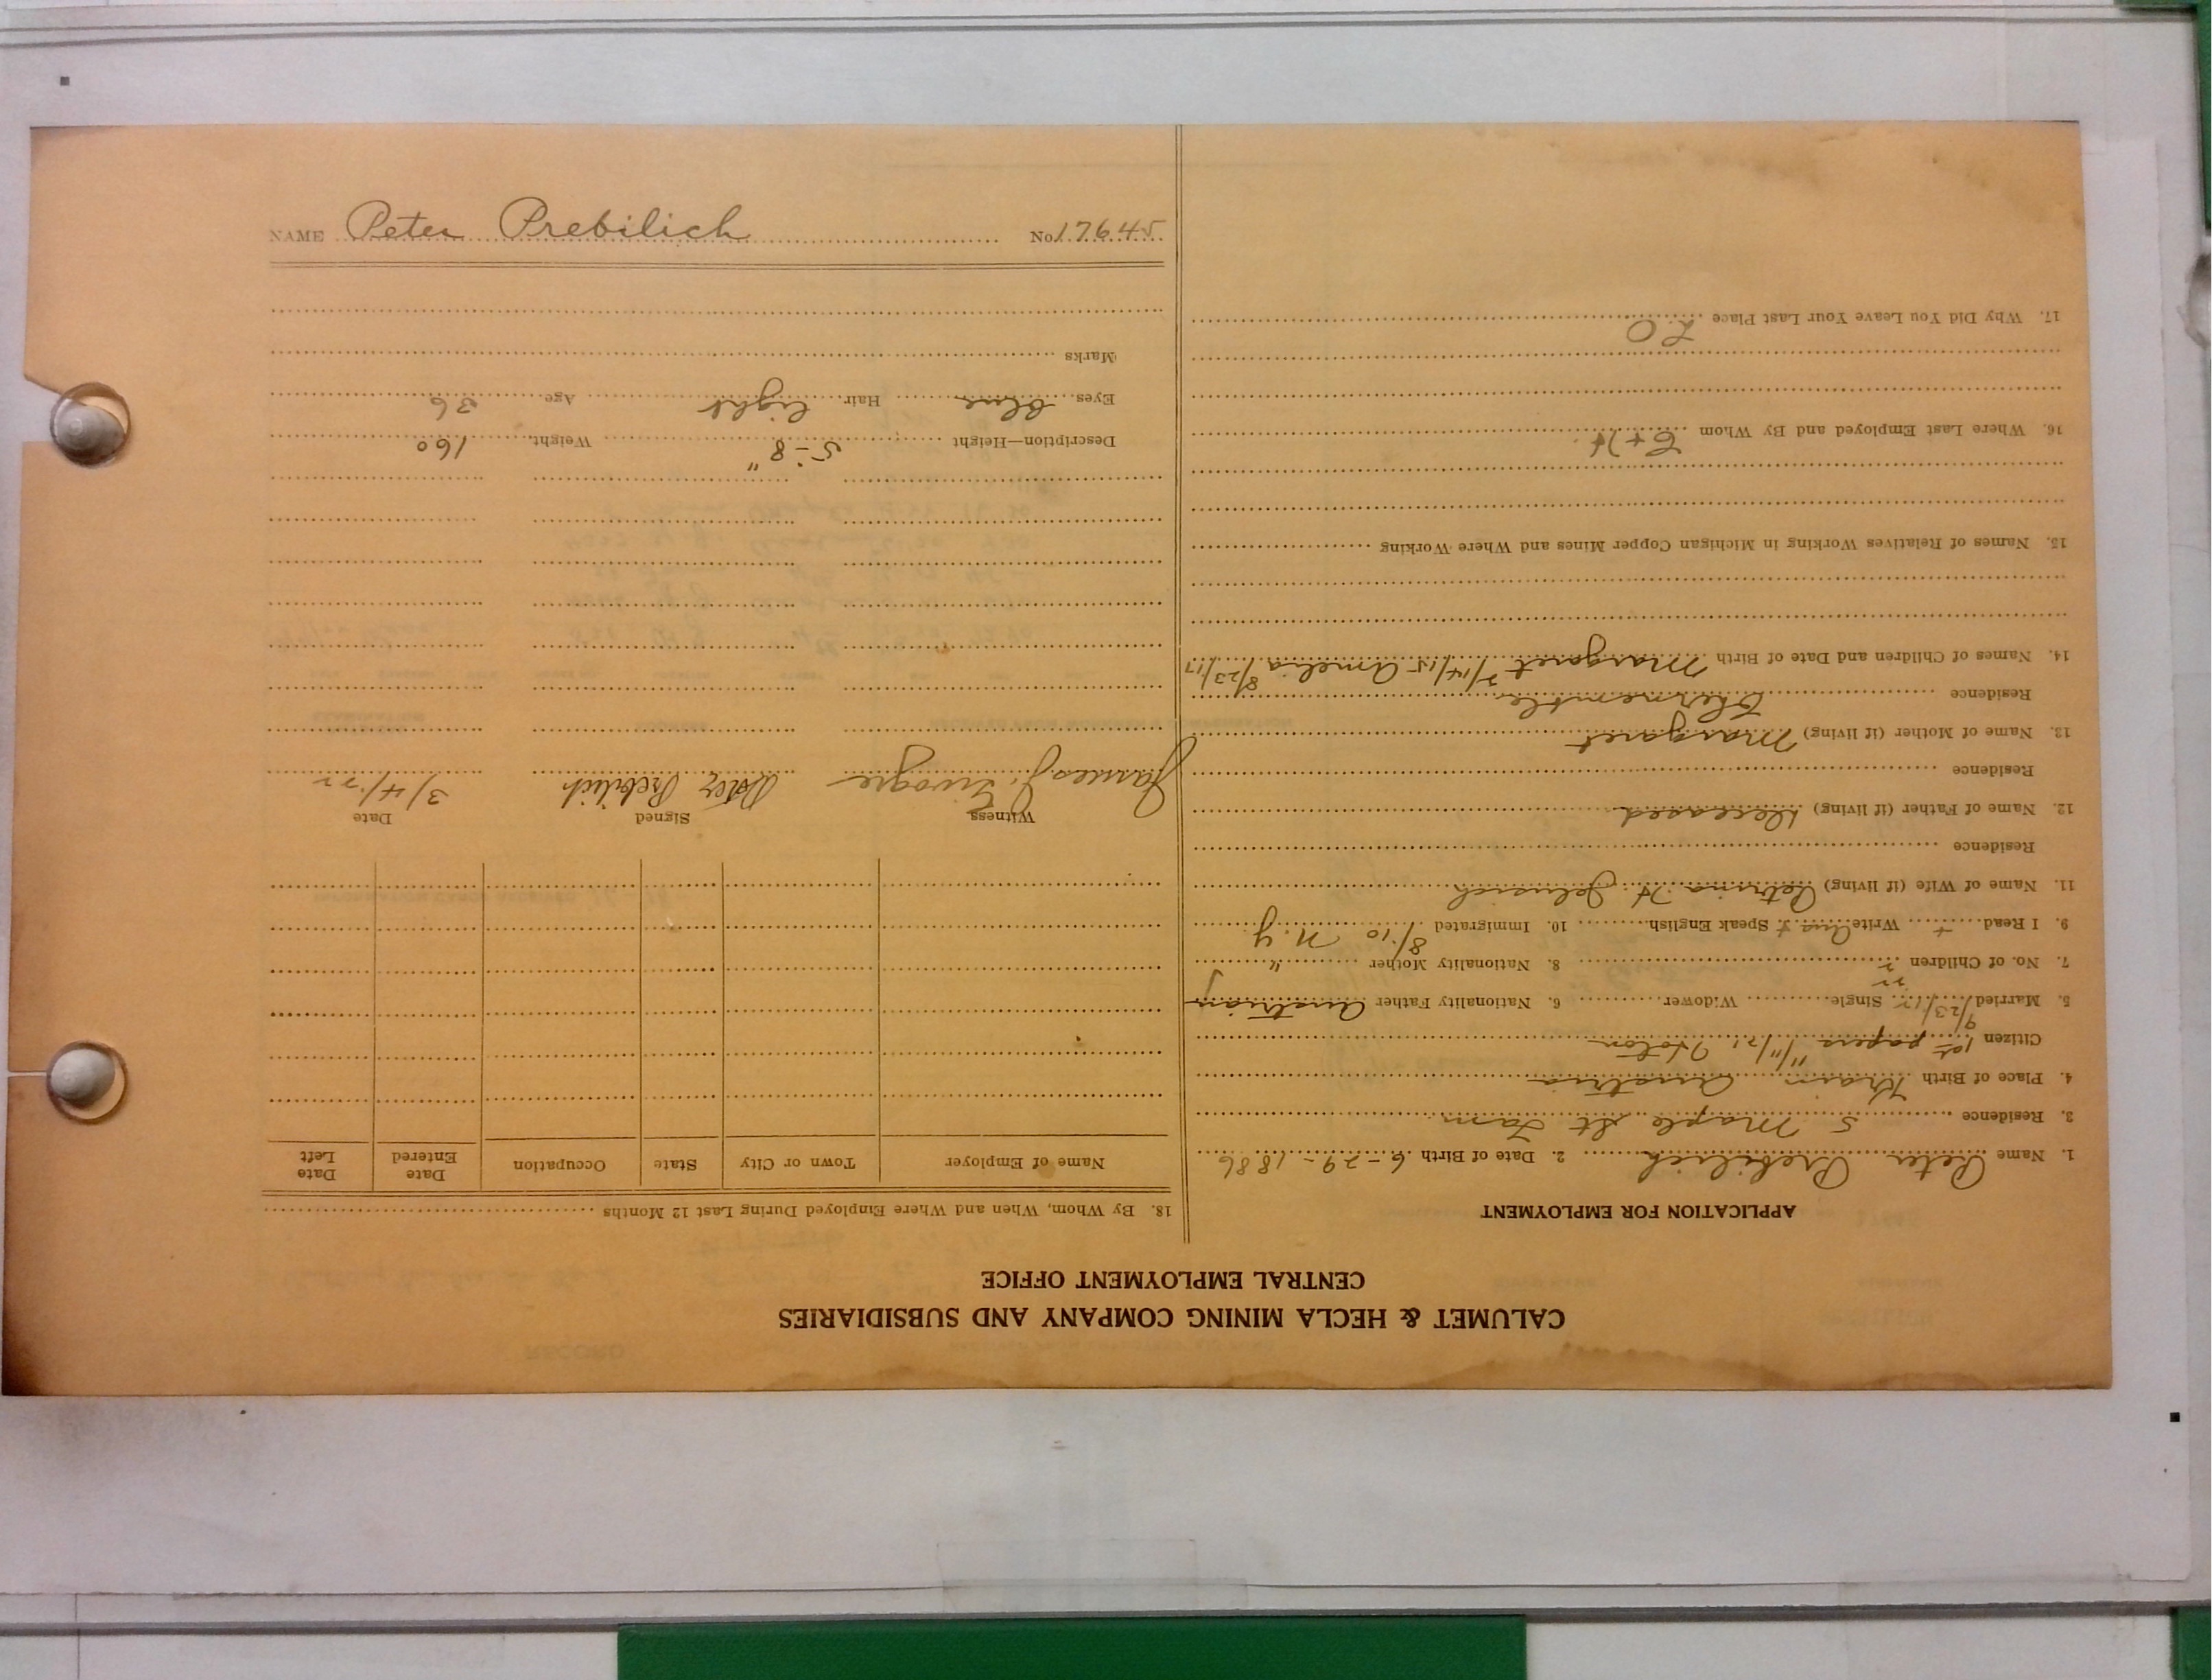 CALUMET & HECLA MINING COMPANY AND SUBSIDIARIES
CENTRAL EMPLOYMENT OFFICE
APPLICATION FOR EMPLOYMENT
1. Name Peter Prebilich 2. Date of Birth 6-29-1886
3. Residence 5 Maple St
4. Place of Birth Krain Austria
Citizen 1st papers 11/11/21 Hoton
5. Married 9/23/12 Single Widower 6. Nationality Father Austrian
7. No. of Children 2 8. Nationality Mother "
9. I Read + Write Aus + Speak English 10. Immigrated 8/10 N.Y
11. Name of Wife (if living) Petrina H
Residence
12. Name of Father (if living) Deceased
Residence
13. Name of Mother (if living) Margaret
Residence
14. Names of Children and Date of Birth Margaret 7/14/15 Amelia 8/23/17
15. Names of Relatives Working in Michigan Copper Mines and Where Working
16. Where Last Employed and By Whom C + H
17. Why Did You Leave Your Last Place L.O
18. By Whom, When and Where Employed During Last 12 Months
Name of Employer Town or City State Occupation Date Entered Date Left
Witness Signed Date
James J. Peter Prebilich 3/4/22
Description—Height 5'-8" Weight 160
Eyes blue Hair light Age 36
Marks
NAME Peter Prebilich No. 17645